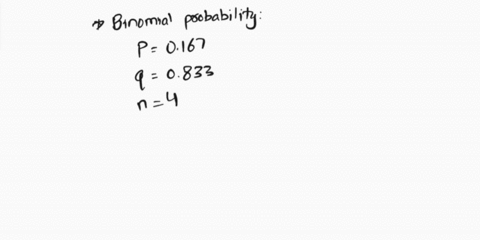 → Binomial probability:
P = 0.167
q = 0.833
n = 4